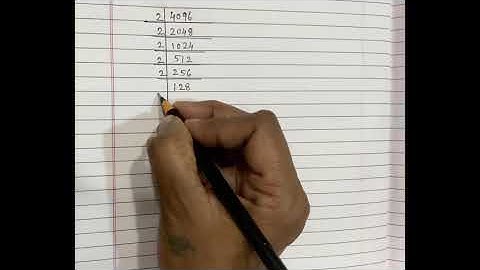 2 4096
2 2048
2 1024
2 512
2 256
128